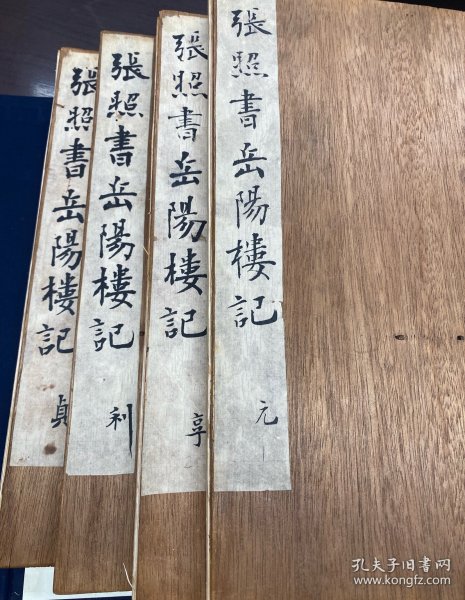 張照書岳陽樓記 元
張照書岳陽樓記 享
張照書岳陽樓記 利
張照書岳陽樓記 貞
孔夫子旧书网
www.kongfz.com